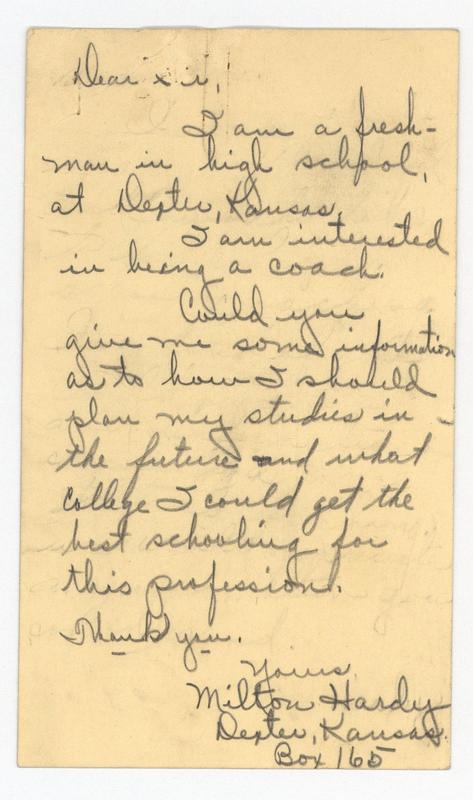 Dear sir,
I am a fresh-
man in high school,
at Dexter, Kansas,
I am interested
in being a coach.
Could you
give me some information
as to how I should
plan my studies in
the future and what
College I could get the
best schooling for
this profession.
Thank you.
Yours,
Milton Hardy
Dexter, Kansas.
Box 165